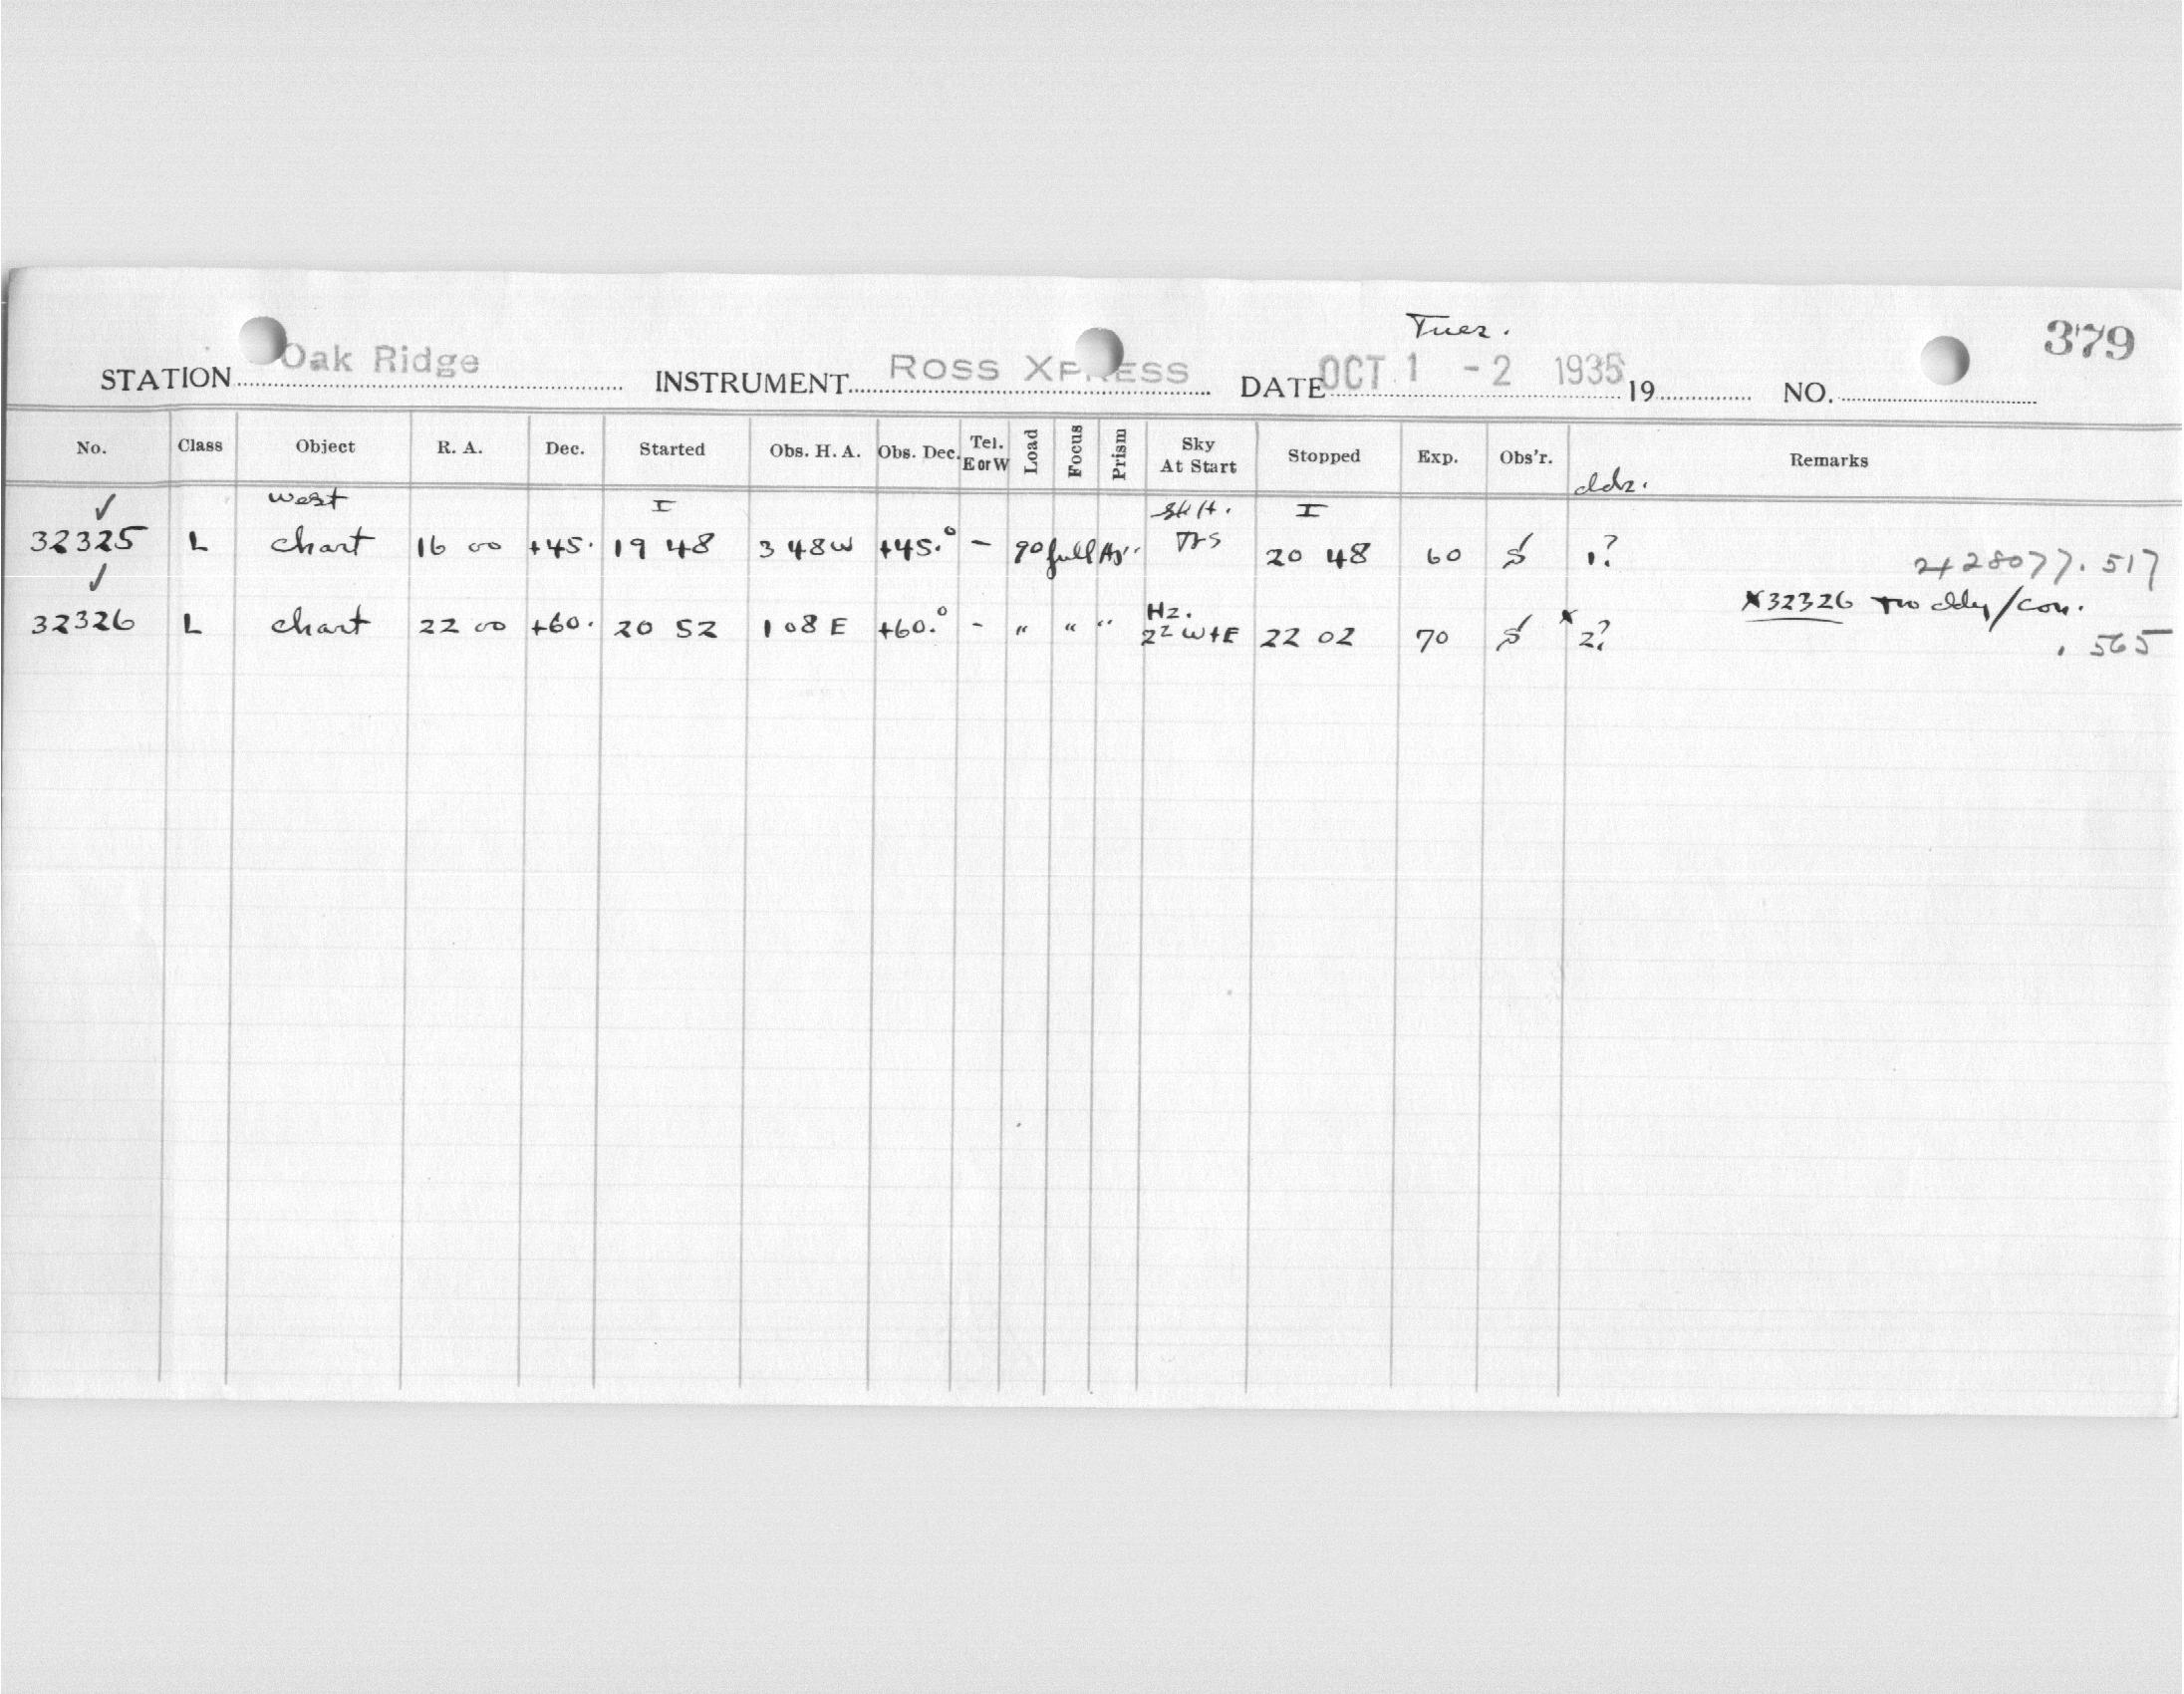 Tues.
379
STATION Oak Ridge INSTRUMENT ROSS XPRESS DATE OCT 1 - 2 1935 19 NO.
No. Class Object R. A. Dec. Started Obs. H. A. Obs. Dec. Tel. E or W Load Focus Prism Sky At Start Stopped Exp. Obs'r. Remarks
✓ west I I
32325 L chart 16 00 +45. 19 48 3 48W +45.° - 90 full 20 48 60 1? 2428077.517
✓ x32326 two /
32326 L chart 22 00 +60. 20 52 1 08 E +60.° - " " " Hz. 22 W+E 22 02 70 x 2? .565